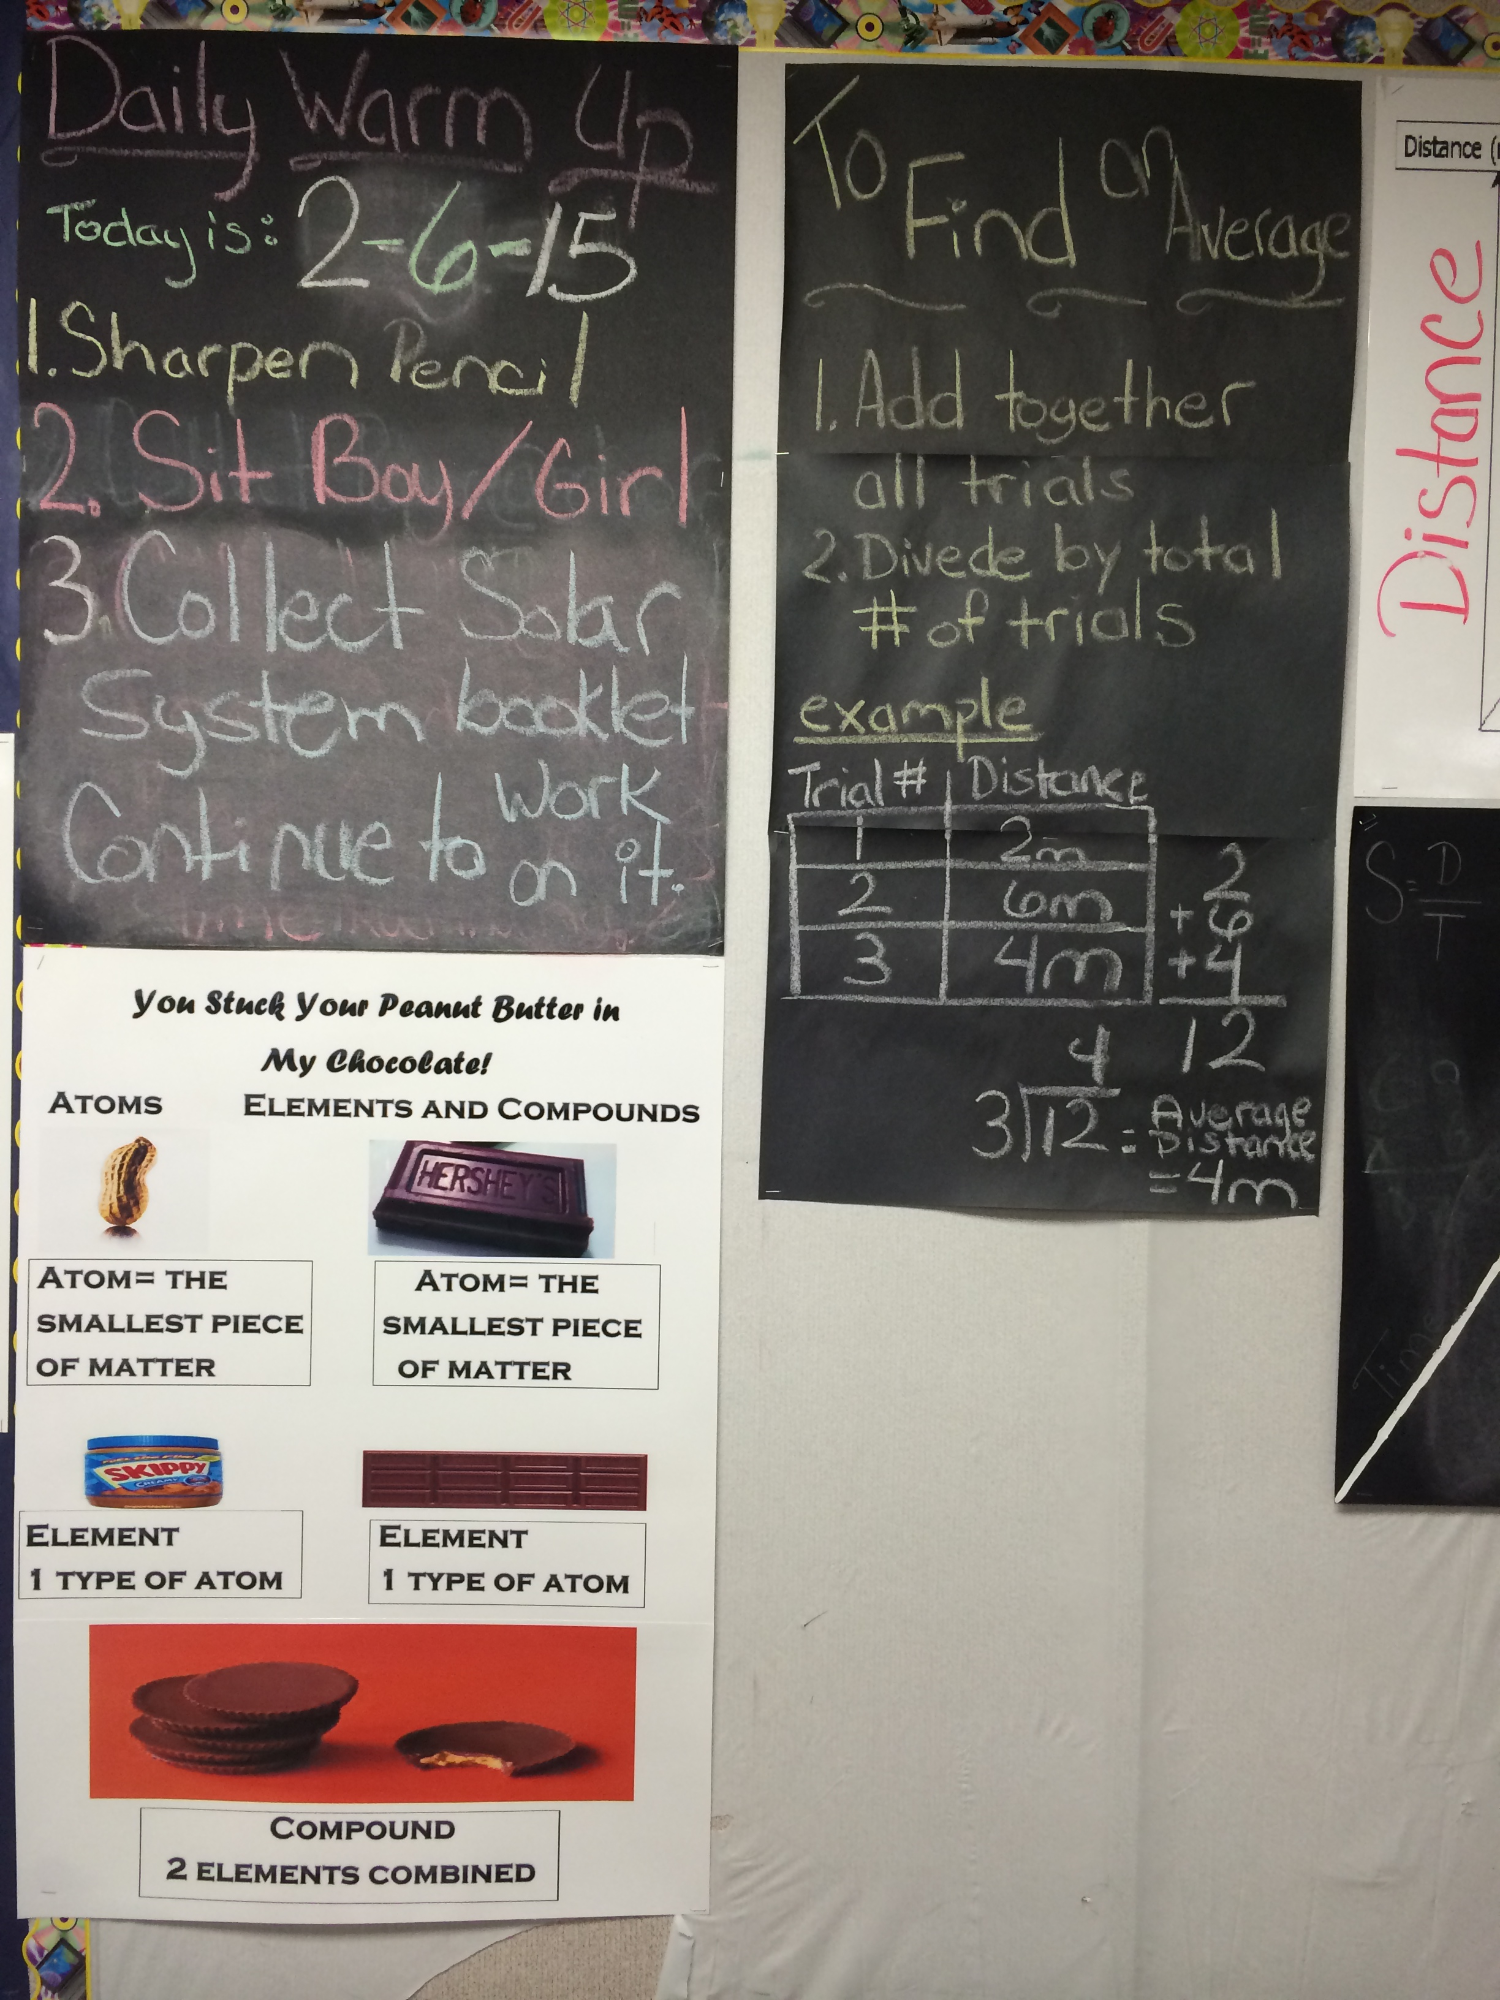 Daily Warm Up
Today is: 2-6-15
1. Sharpen Pencil
2. Sit Boy/Girl
3. Collect Solar
System booklet
Continue to work
on it.
You Stuck Your Peanut Butter in
My Chocolate!
ATOMS
ELEMENTS AND COMPOUNDS
HERSHEY'S
ATOM= THE
SMALLEST PIECE
OF MATTER
ATOM= THE
SMALLEST PIECE
OF MATTER
SKIPPY
CREAMY
ELEMENT
1 TYPE OF ATOM
ELEMENT
1 TYPE OF ATOM
COMPOUND
2 ELEMENTS COMBINED
To Find an Average
1. Add together
all trials
2. Divede by total
# of trials
example
Trial # Distance
1 2m
2 6m
3 4m
2
+ 6
+ 4
12
4
3 12 = Average
Distance
= 4m
Distance (
Distance
S = D
T
Time